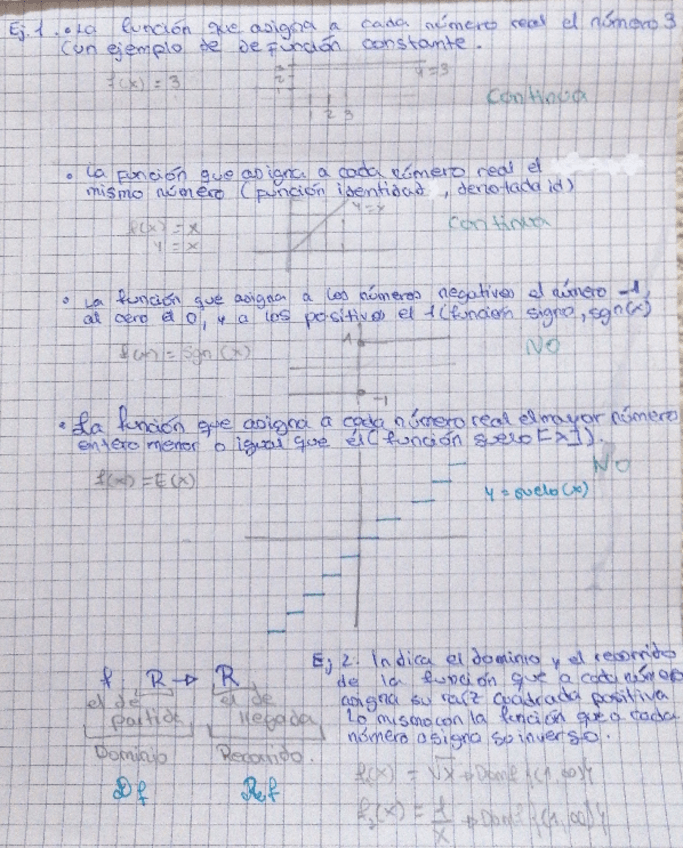 Ej. 1. • La función que asigna a cada número real el número 3
(un ejemplo de de función constante.
f(x) = 3
y=3
3
2
1
1 2 3
continua
• La función que asigna a cada número real el
mismo número (función identidad, denotada id)
f(x) = x
y = x
y=x
continua
• La función que asigna a los números negativos el número -1,
al cero el 0, y a los positivos el 1 (función signo, sgn(x)
f(x) = sgn (x)
1
-1
NO
• La función que asigna a cada número real el mayor número
entero menor o igual que él (función suelo [x]).
NO
f(x) = E(x)
y = suelo(x)
f R → R
el de partida
el de llegada
Dominio
Recorrido.
Df
Ref
Ej 2. Indica el dominio y el recorrido
de la función que a cada número
asigna su raíz cuadrada positiva
Lo mismo con la función que a cada
número asigna so inverso.
f₁(x) = √x → Domf {(1,∞)}
f₂(x) = 1/x → Domf {(1,∞)}